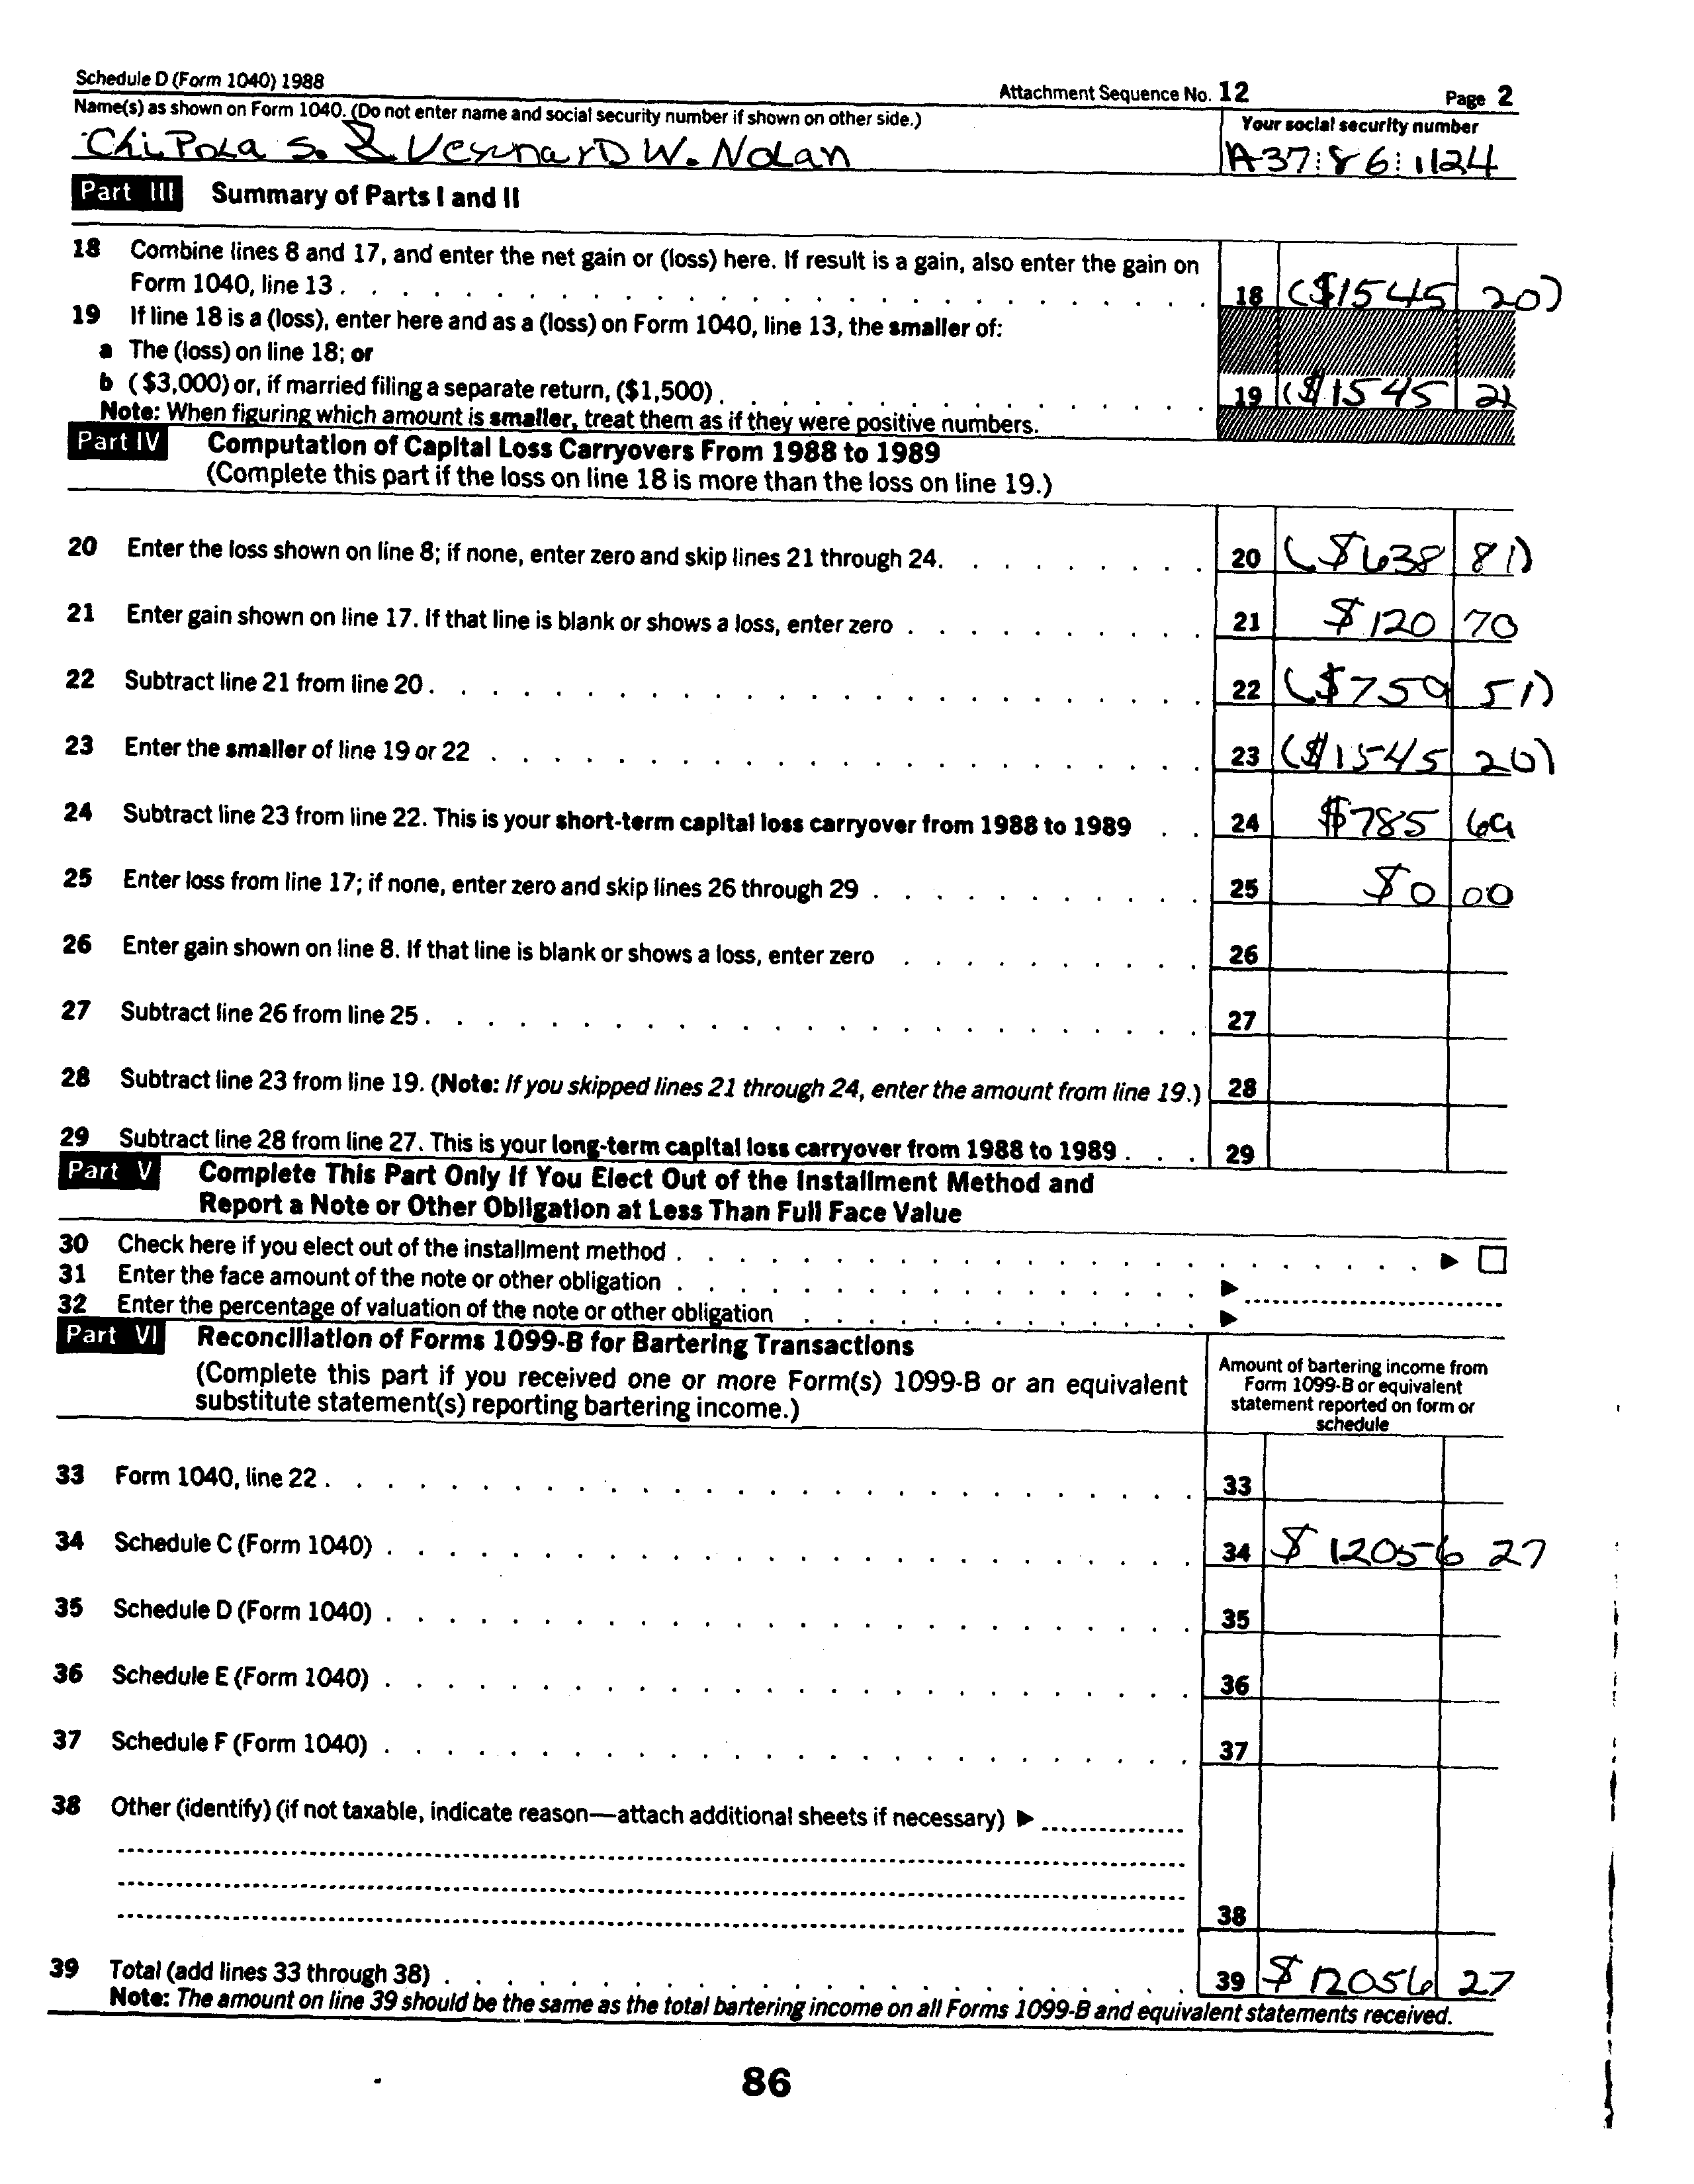 Schedule D (Form 1040) 1988 Attachment Sequence No. 12 Page 2
Name(s) as shown on Form 1040. (Do not enter name and social security number if shown on other side.) Your social security number
ChiPola S. & VernarD W. Nolan A37:86:1124
Part III Summary of Parts I and II
18 Combine lines 8 and 17, and enter the net gain or (loss) here. If result is a gain, also enter the gain on
Form 1040, line 13 . 18 ($1545 20)
19 If line 18 is a (loss), enter here and as a (loss) on Form 1040, line 13, the smaller of:
a The (loss) on line 18; or
b ($3,000) or, if married filing a separate return, ($1,500) . 19 ($1545 21
Note: When figuring which amount is smaller, treat them as if they were positive numbers.
Part IV Computation of Capital Loss Carryovers From 1988 to 1989
(Complete this part if the loss on line 18 is more than the loss on line 19.)
20 Enter the loss shown on line 8; if none, enter zero and skip lines 21 through 24. 20 ($638 81)
21 Enter gain shown on line 17. If that line is blank or shows a loss, enter zero . 21 $120 70
22 Subtract line 21 from line 20 . 22 ($759 51)
23 Enter the smaller of line 19 or 22 . 23 ($1545 20)
24 Subtract line 23 from line 22. This is your short-term capital loss carryover from 1988 to 1989 . 24 $785 69
25 Enter loss from line 17; if none, enter zero and skip lines 26 through 29 . 25 $0 00
26 Enter gain shown on line 8. If that line is blank or shows a loss, enter zero . 26
27 Subtract line 26 from line 25 . 27
28 Subtract line 23 from line 19. (Note: If you skipped lines 21 through 24, enter the amount from line 19.) 28
29 Subtract line 28 from line 27. This is your long-term capital loss carryover from 1988 to 1989 . 29
Part V Complete This Part Only If You Elect Out of the Installment Method and
Report a Note or Other Obligation at Less Than Full Face Value
30 Check here if you elect out of the installment method . ▶ □
31 Enter the face amount of the note or other obligation . ▶
32 Enter the percentage of valuation of the note or other obligation . ▶
Part VI Reconciliation of Forms 1099-B for Bartering Transactions
(Complete this part if you received one or more Form(s) 1099-B or an equivalent
substitute statement(s) reporting bartering income.)
Amount of bartering income from
Form 1099-B or equivalent
statement reported on form or
schedule
33 Form 1040, line 22 . 33
34 Schedule C (Form 1040) . 34 $12056 27
35 Schedule D (Form 1040) . 35
36 Schedule E (Form 1040) . 36
37 Schedule F (Form 1040) . 37
38 Other (identify) (if not taxable, indicate reason—attach additional sheets if necessary) ▶
38
39 Total (add lines 33 through 38) . 39 $12056 27
Note: The amount on line 39 should be the same as the total bartering income on all Forms 1099-B and equivalent statements received.
86